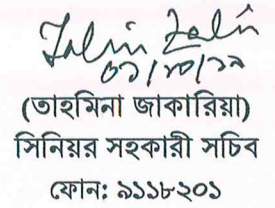 ০১/১০/১৯
(তাহমিনা জাকারিয়া)
সিনিয়র সহকারী সচিব
ফোন: ৯১১৮২০১